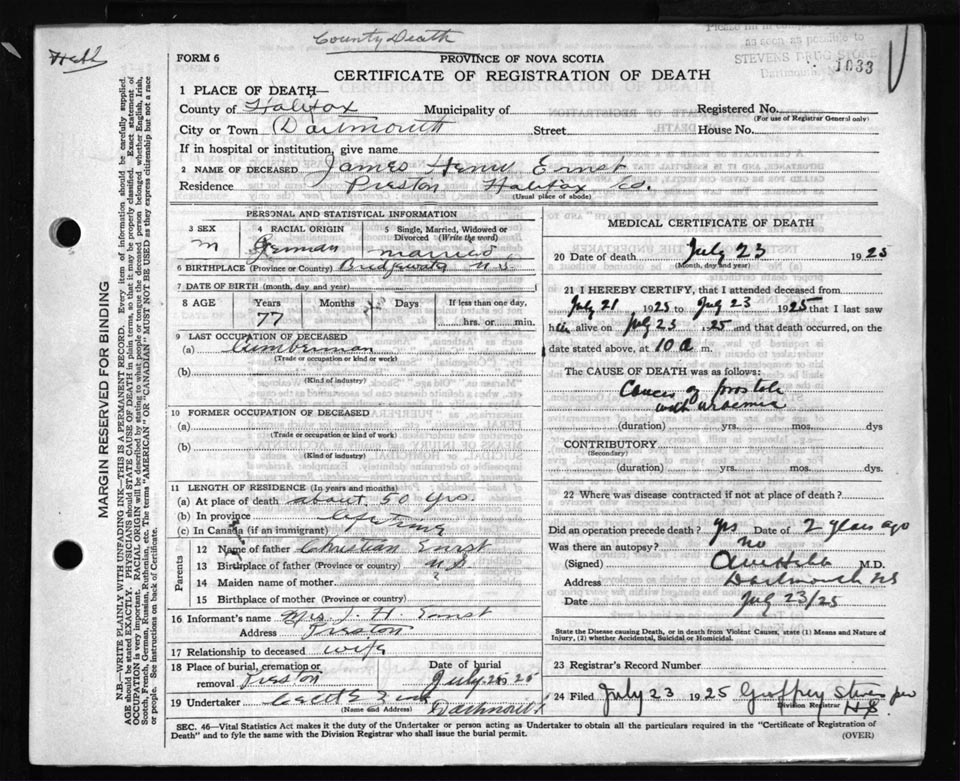 County Death
FORM 6
PROVINCE OF NOVA SCOTIA
CERTIFICATE OF REGISTRATION OF DEATH
STEVENS DRUG STORE
1033
1 PLACE OF DEATH—
County of Halifax Municipality of Registered No.
(For use of Registrar General only)
City or Town Dartmouth Street House No.
If in hospital or institution, give name
2 NAME OF DECEASED James Henry Ernst
Residence Preston Halifax Co.
(Usual place of abode)
PERSONAL AND STATISTICAL INFORMATION
3 SEX 4 RACIAL ORIGIN 5 Single, Married, Widowed or Divorced (Write the word)
m German married
6 BIRTHPLACE (Province or Country) Bridgewater N.S.
7 DATE OF BIRTH (month, day and year)
8 AGE Years Months Days If less than one day,
77 hrs. or min.
9 LAST OCCUPATION OF DECEASED
(a) Lumberman
(Trade or occupation or kind or work)
(b)
(Kind of industry)
10 FORMER OCCUPATION OF DECEASED
(a)
(Trade or occupation or kind of work)
(b)
(Kind of industry)
11 LENGTH OF RESIDENCE (In years and months)
(a) At place of death about 50 yrs.
(b) In province lifetime
(c) In Canada (if an immigrant)
Parents
12 Name of father Christian Ernst
13 Birthplace of father (Province or country) N.S.
14 Maiden name of mother ?
15 Birthplace of mother (Province or country)
16 Informant's name Mrs. J. H. Ernst
Address Preston
17 Relationship to deceased wife
18 Place of burial, cremation or removal Preston Date of burial July 25
19 Undertaker Dartmouth
(Name and Address)
MEDICAL CERTIFICATE OF DEATH
20 Date of death July 23 1925
(Month, day and year)
21 I HEREBY CERTIFY, that I attended deceased from
July 21 1925 to July 23 1925 that I last saw
him alive on July 23 1925 and that death occurred, on the
date stated above, at 10 a m.
The CAUSE OF DEATH was as follows:
Cancer of prostate
with uraemia
(duration) yrs. mos. dys
CONTRIBUTORY
(Secondary)
(duration) yrs. mos. ds.
22 Where was disease contracted if not at place of death?
Did an operation precede death? yes Date of 2 years ago
Was there an autopsy? no
(Signed) M.D.
Address Dartmouth NS
Date July 23/25
State the Disease causing Death, or in death from Violent Causes, state (1) Means and Nature of Injury, (2) whether Accidental, Suicidal or Homicidal.
23 Registrar's Record Number
24 Filed July 23 1925 Geoffrey Stevens per
Division Registrar H.S.
SEC. 46—Vital Statistics Act makes it the duty of the Undertaker or person acting as Undertaker to obtain all the particulars required in the "Certificate of Registration of
Death" and to fyle the same with the Division Registrar who shall issue the burial permit. (OVER)
MARGIN RESERVED FOR BINDING
N.B.—WRITE PLAINLY WITH UNFADING INK—THIS IS A PERMANENT RECORD. Every item of information should be carefully supplied.
AGE should be stated EXACTLY. PHYSICIANS should STATE CAUSE OF DEATH in plain terms, so that it may be properly classified. Exact statement of
OCCUPATION is very important. RACIAL ORIGIN will be described by stating to what people or tongue the deceased person belonged, whether English, Irish,
Scotch, French, German, Russian, Ruthenian, etc. The terms "AMERICAN" OR "CANADIAN" MUST NOT BE USED as they express citizenship but not a race
or people. See instructions on back of Certificate.